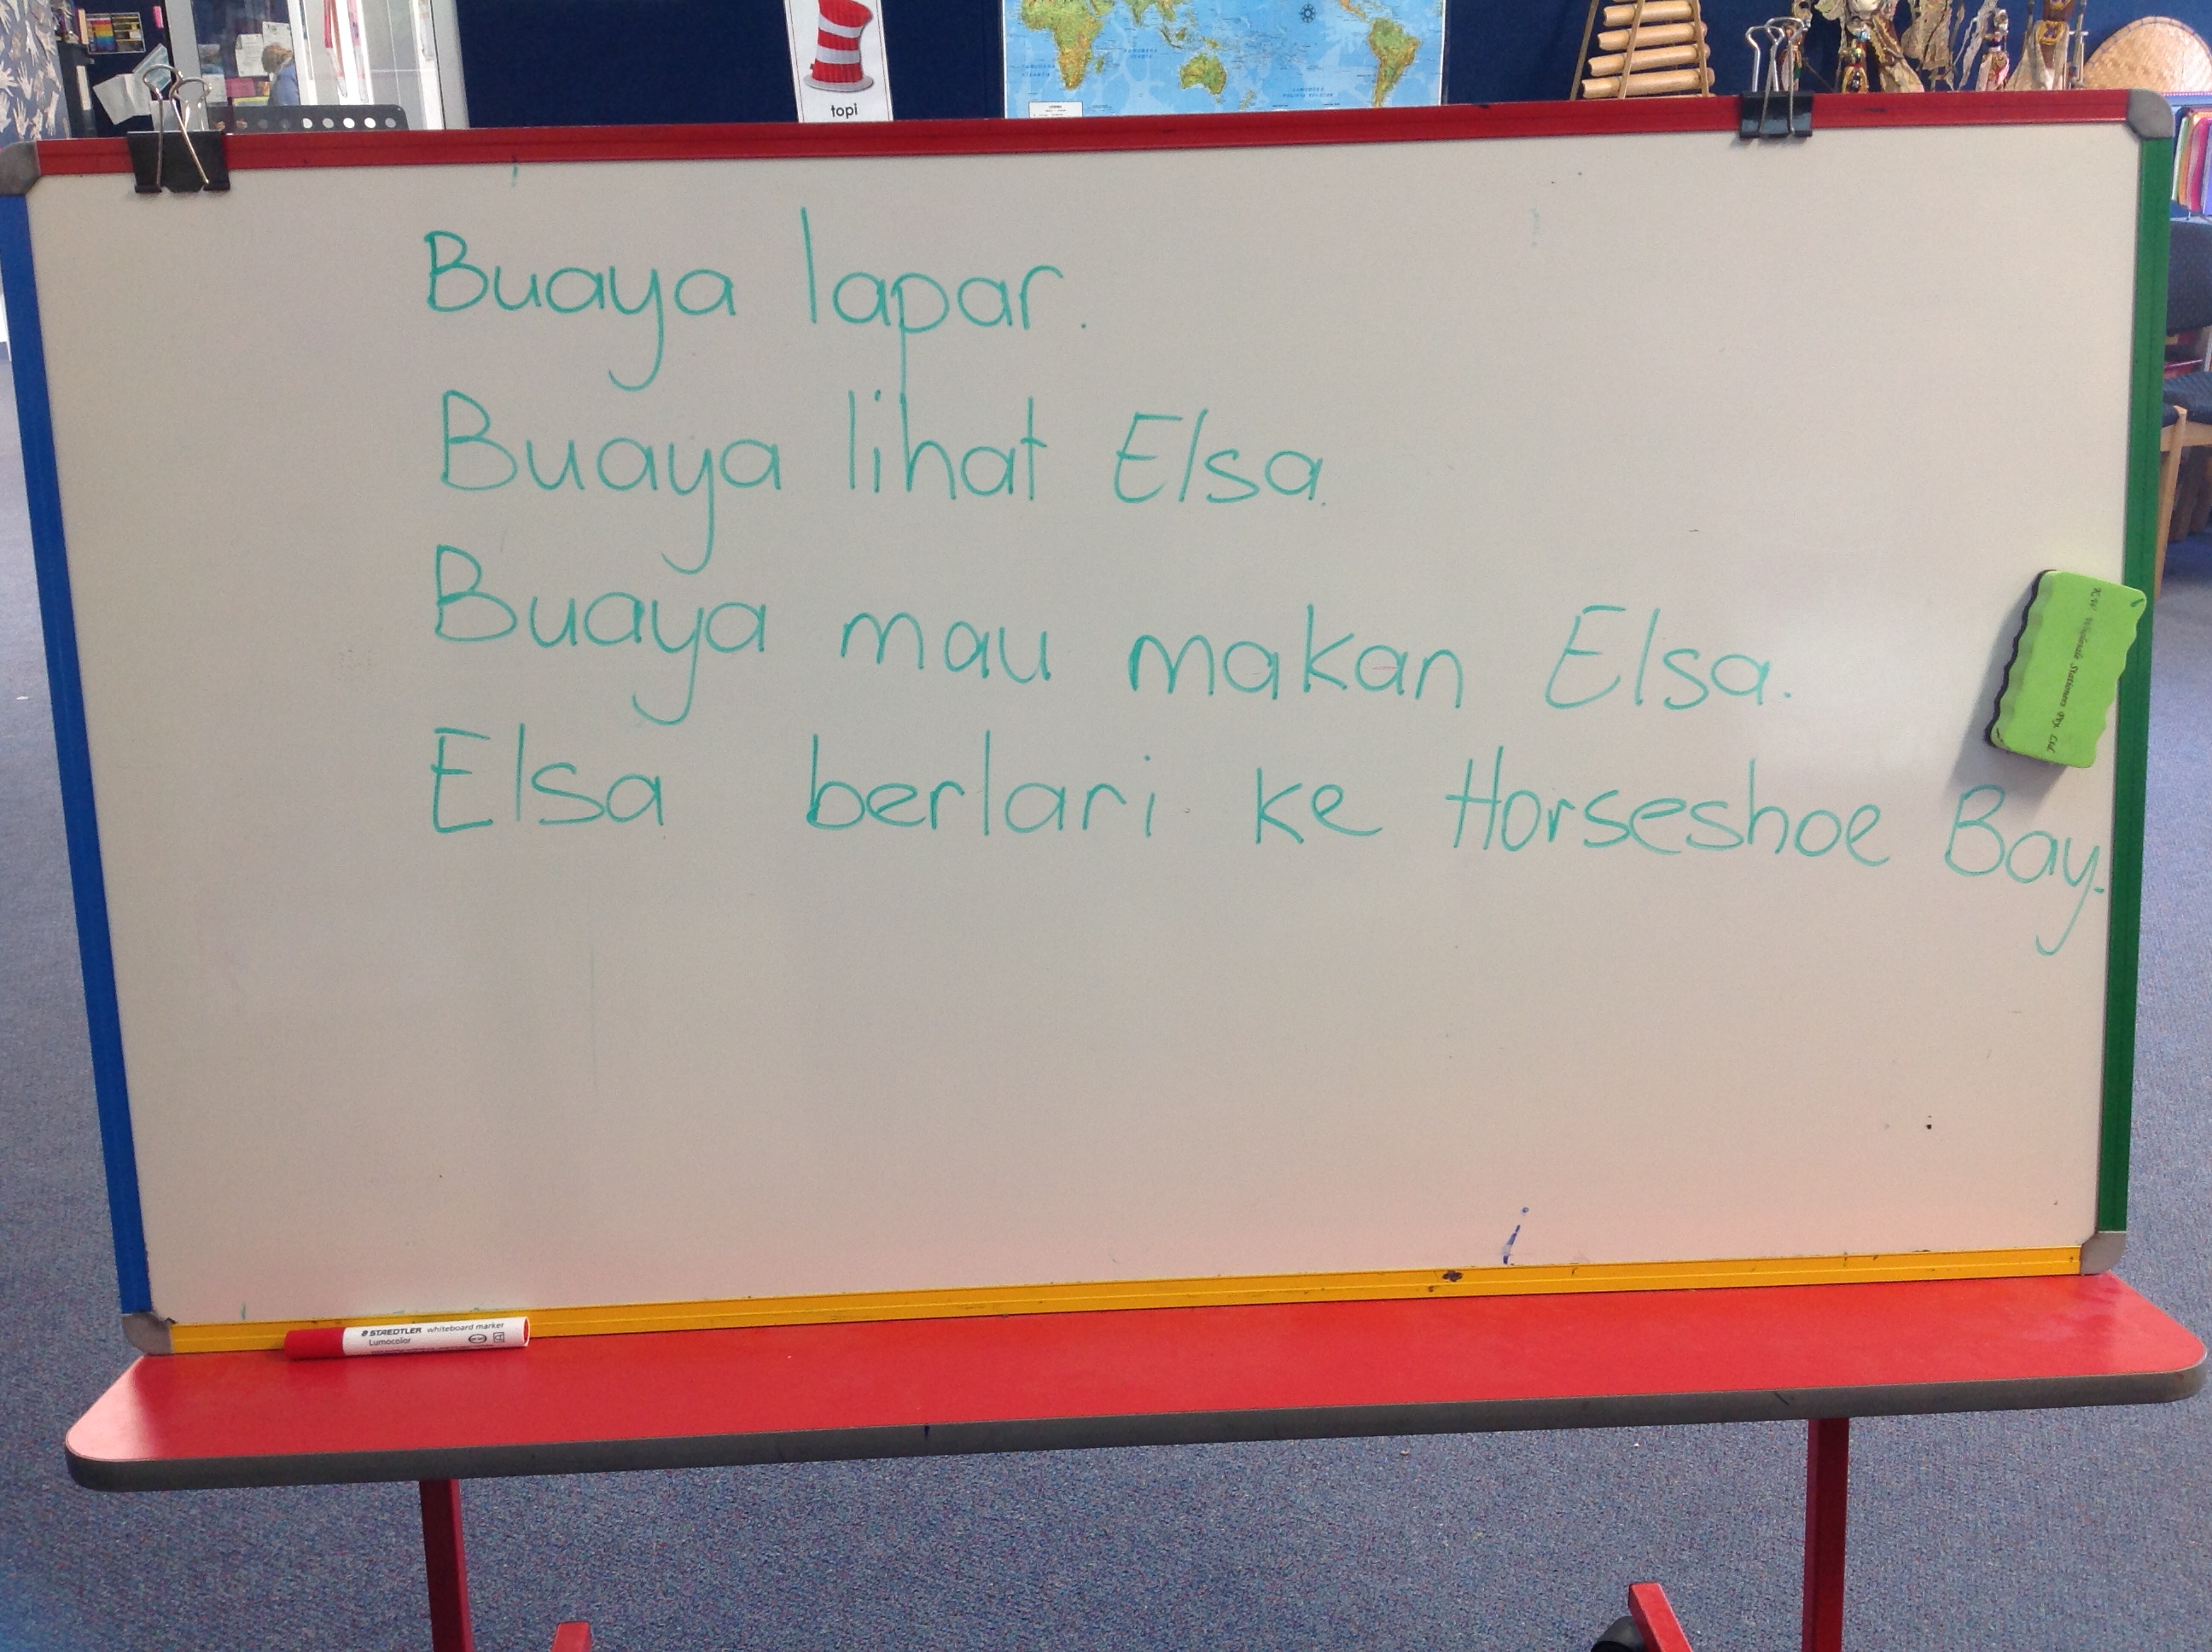 topi
Buaya lapar.
Buaya lihat Elsa.
Buaya mau makan Elsa.
Elsa berlari ke Horseshoe Bay.
STAEDTLER whiteboard marker
Lumocolor